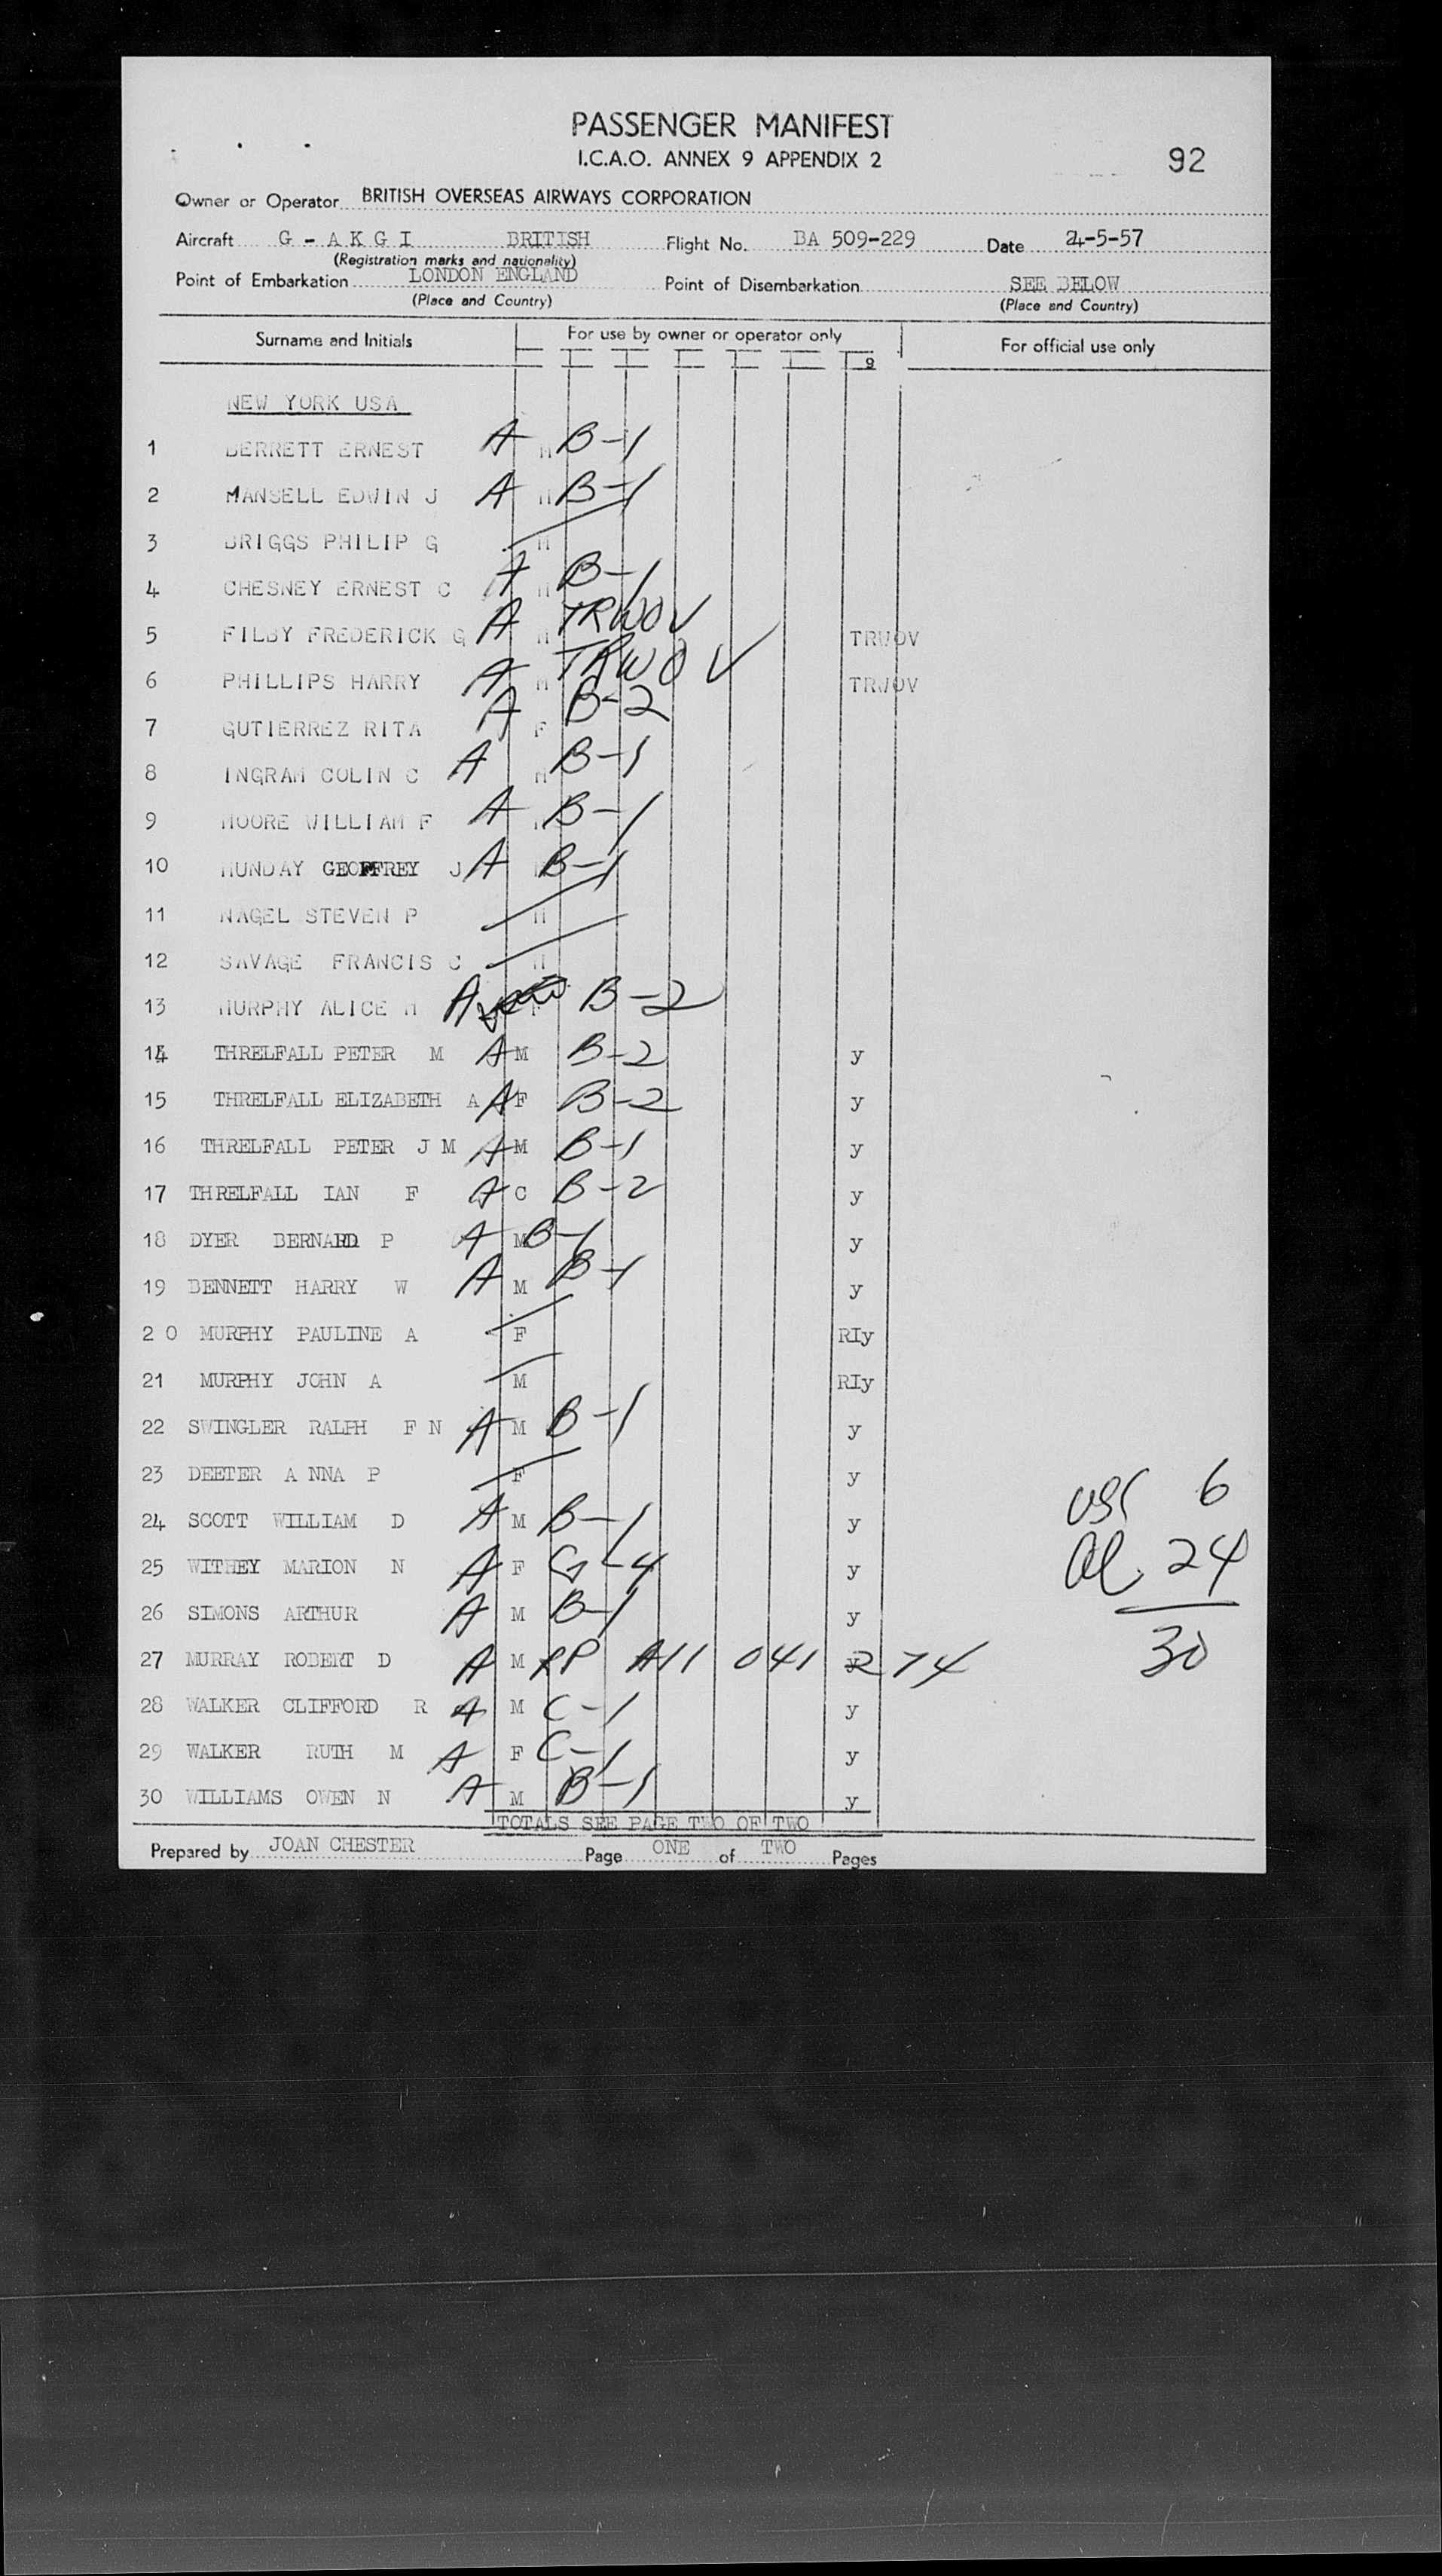 PASSENGER MANIFEST
I.C.A.O. ANNEX 9 APPENDIX 2
92
Owner or Operator BRITISH OVERSEAS AIRWAYS CORPORATION
Aircraft G - A K G I BRITISH Flight No. BA 509-229 Date 4-5-57
(Registration marks and nationality)
Point of Embarkation LONDON ENGLAND Point of Disembarkation SEE BELOW
(Place and Country) (Place and Country)
Surname and Initials For use by owner or operator only For official use only
9
NEW YORK USA
1 BERRETT ERNEST A M B-1
2 MANSELL EDWIN J A M B-1
3 BRIGGS PHILIP G M
4 CHESNEY ERNEST C A M B-1
5 FILBY FREDERICK G A M TRWOV TRWOV
6 PHILLIPS HARRY A M TRWOV TRWOV
7 GUTIERREZ RITA A F B-2
8 INGRAM COLIN C A M B-1
9 MOORE WILLIAM F A M B-1
10 MUNDAY GEOFFREY J A B-1
11 NAGEL STEVEN P M
12 SAVAGE FRANCIS C M
13 MURPHY ALICE M A F B-2
14 THRELFALL PETER M A M B-2 y
15 THRELFALL ELIZABETH A A F B-2 y
16 THRELFALL PETER J M A M B-1 y
17 THRELFALL IAN F A C B-2 y
18 DYER BERNARD P A M B-1 y
19 BENNETT HARRY W A M B-1 y
2 0 MURPHY PAULINE A F RIy
21 MURPHY JOHN A M RIy
22 SWINGLER RALPH F N A M B-1 y
23 DEETER A NNA P F y
usc 6
24 SCOTT WILLIAM D A M B-1 y
25 WITHEY MARION N A F G-4 y
al. 24
26 SIMONS ARTHUR A M B-1 y
27 MURRAY ROBERT D A M RP A11 041 274
30
28 WALKER CLIFFORD R A M C-1 y
29 WALKER RUTH M A F C-1 y
30 WILLIAMS OWEN N A M B-1 y
TOTALS SEE PAGE TWO OF TWO
Prepared by JOAN CHESTER Page ONE of TWO Pages